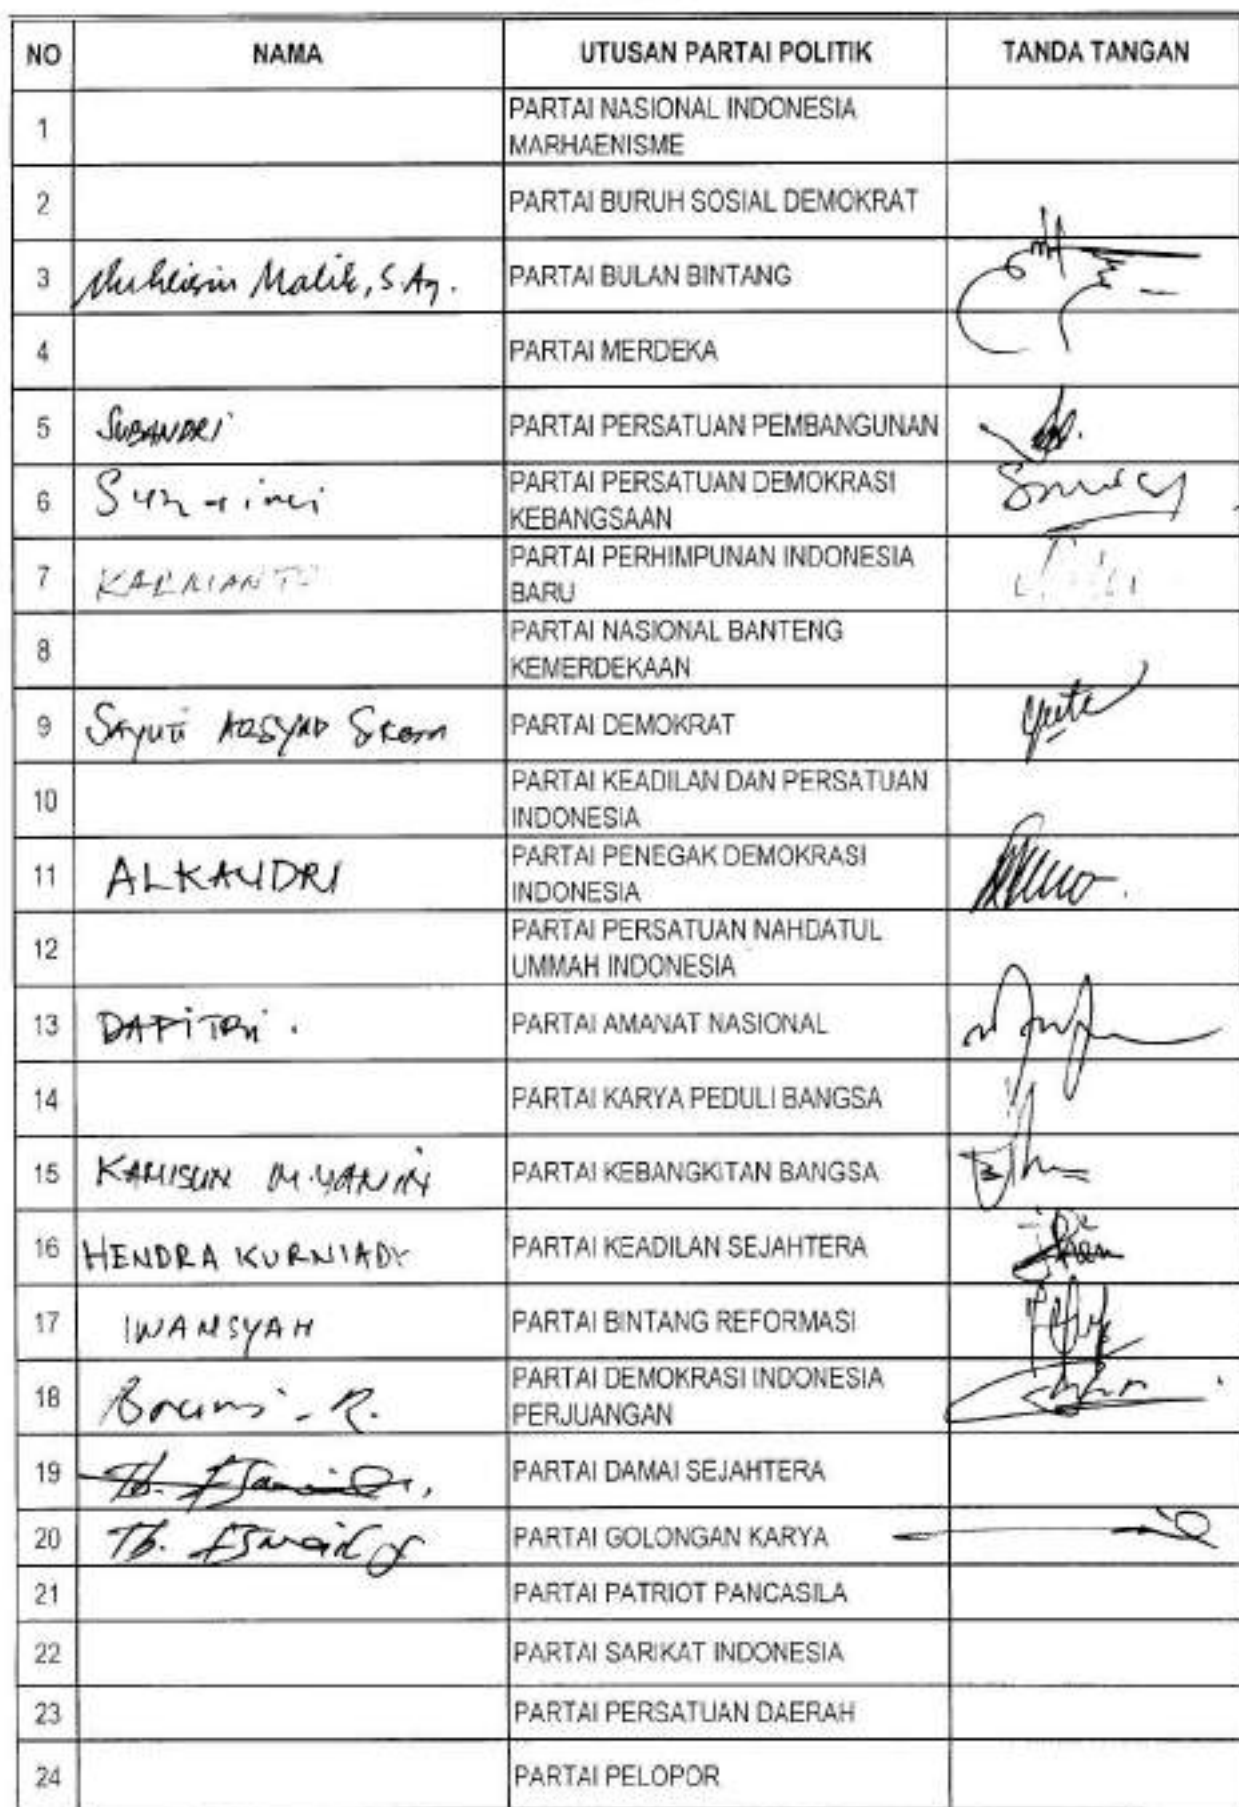 NO NAMA UTUSAN PARTAI POLITIK TANDA TANGAN
1 PARTAI NASIONAL INDONESIA
MARHAENISME
2 PARTAI BURUH SOSIAL DEMOKRAT
3 Muhlisin Malik, S.Ag. PARTAI BULAN BINTANG
4 PARTAI MERDEKA
5 SUBANDRI PARTAI PERSATUAN PEMBANGUNAN
6 PARTAI PERSATUAN DEMOKRASI
KEBANGSAAN
7 PARTAI PERHIMPUNAN INDONESIA
BARU
8 PARTAI NASIONAL BANTENG
KEMERDEKAAN
9 SAYUTI ARSYAD SKom PARTAI DEMOKRAT
10 PARTAI KEADILAN DAN PERSATUAN
INDONESIA
11 PARTAI PENEGAK DEMOKRASI
INDONESIA
12 PARTAI PERSATUAN NAHDATUL
UMMAH INDONESIA
13 DAPITRI . PARTAI AMANAT NASIONAL
14 PARTAI KARYA PEDULI BANGSA
15 PARTAI KEBANGKITAN BANGSA
16 HENDRA KURNIADY PARTAI KEADILAN SEJAHTERA
17 IWANSYAH PARTAI BINTANG REFORMASI
18 PARTAI DEMOKRASI INDONESIA
PERJUANGAN
19 PARTAI DAMAI SEJAHTERA
20 Tb. PARTAI GOLONGAN KARYA
21 PARTAI PATRIOT PANCASILA
22 PARTAI SARIKAT INDONESIA
23 PARTAI PERSATUAN DAERAH
24 PARTAI PELOPOR